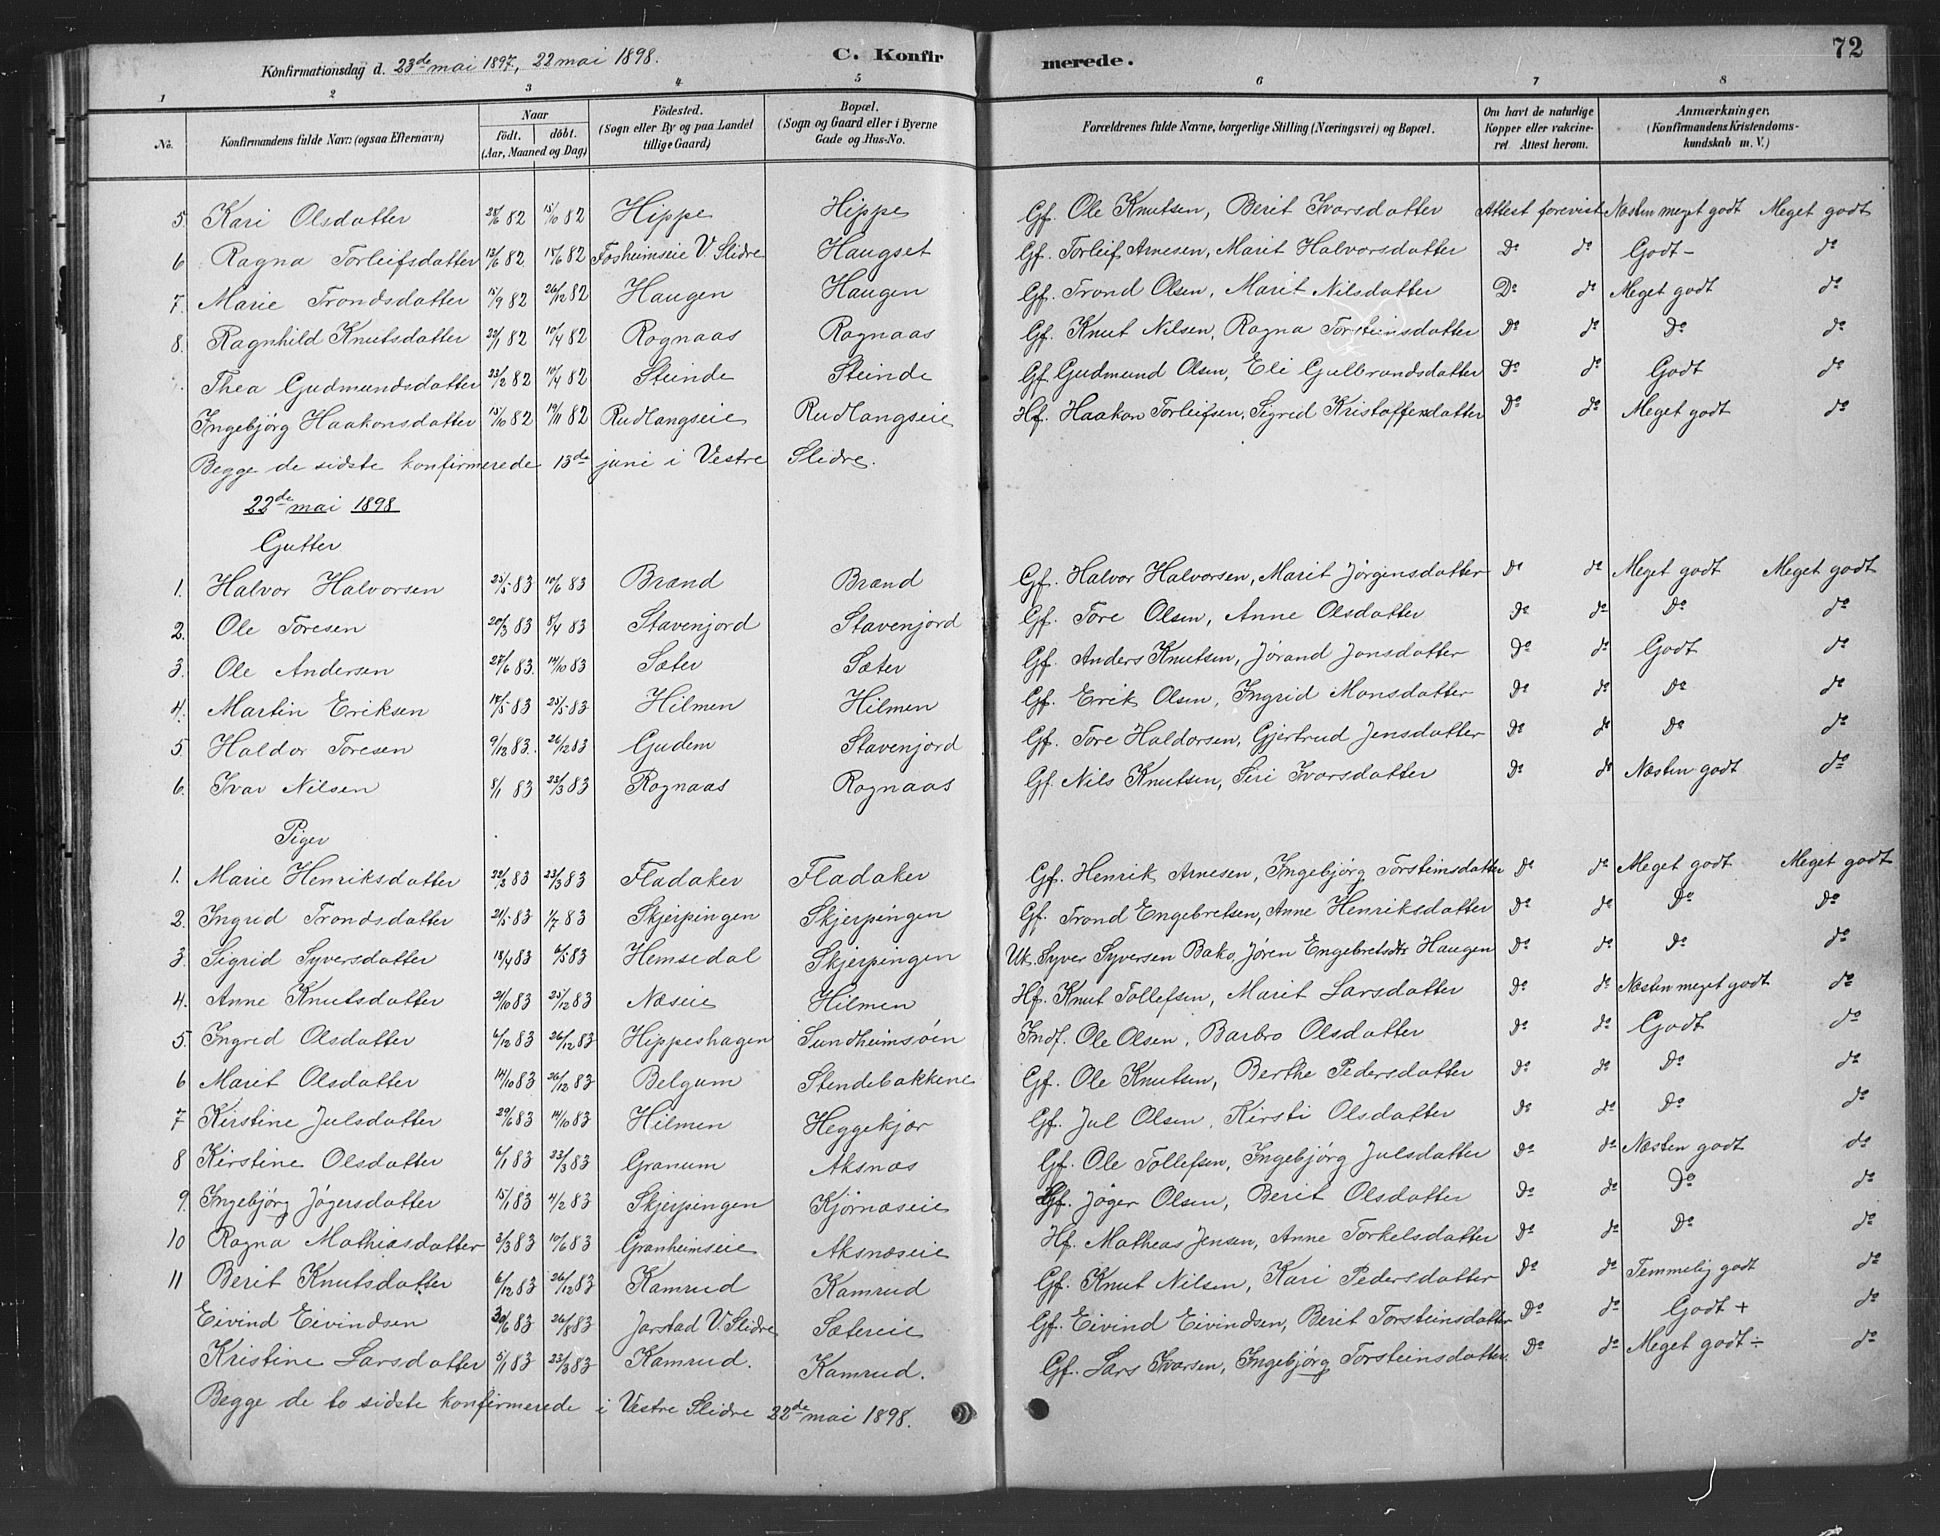 Konfirmationsdag d. 23de mai 1897, 22 mai 1898. C. Konfirmerede. 72
1 2 3 4 5 6 7 8
No. Konfirmandens fulde Navn (ogsaa Efternavn) Naar födt. döbt. (Aar, Maaned og Dag) Födested. (Sogn eller By og paa Landet tillige Gaard) Bopæl. (Sogn og Gaard eller i Byerne Gade og Hus-No. Forældrenes fulde Navne, borgerlige Stilling (Næringsvei) og Bopæl. Om havt de naturlige Kopper eller vakcineret. Attest herom. Anmærkninger, (Konfirmandens Kristendomskundskab m. V.)
5. Kari Olsdatter 28/6 82 15/10 82 Hippe Hippe Gf. Ole Knutsen, Berit Ivarsdatter Attest forevist Næsten meget godt Meget godt
6 Ragna Torleifsdatter 12/6 82 18/6 82 Fosheimseie V. Slidre Haugset Gf. Torleif Arnesen, Marit Halvorsdatter Do do Godt - do
7. Marie Trondsdatter 15/9 82 26/12 82 Haugen Haugen Gf. Trond Olsen, Marit Nilsdatter Do do Meget godt do
8. Ragnhild Knutsdatter 22/1 82 10/4 82 Rognaas Rognaas Gf. Knut Nilsen, Ragna Torsteinsdatter Do do Do do
Thea Gudmundsdatter 23/2 82 10/4 82 Steinde Steinde Gf Gudmund Olsen, Eli Gulbrandsdatter Do do Godt do
Ingebjörg Haakonsdatter 15/10 82 19/11 82 Rudlangseie Rudlangseie Hf. Haakon Torleifsen, Sigrid Kristoffersdatter Do do Meget godt do
Begge de sidste konfirmerede 13de juni i Vestre Slidre.
22de mai 1898
Gutter
1. Halvor Halvorsen 25/5 83 10/6 83 Brænd Brænd Gf. Halvor Halvorsen, Marit Jørgensdatter do do Meget godt Meget godt
2. Ole Toresen 20/3 83 8/4 83 Stavenjord Stavenjord Gf. Tore Olsen, Anne Olsdatter do do Do do
3. Ole Andersen 27/6 83. 14/10 83 Sæter Sæter Gf. Anders Knutsen, Jørand Jonsdatter Do do Godt do
4. Martin Eriksen 14/5 83 25/5 83 Hilmen Hilmen Gf. Erik Olsen, Ingrid Monsdatter do do Do do
5 Haldor Toresen 9/12 83. 26/12 83 Gudem Stavenjord Gf. Tore Haldorsen, Gjertrud Jensdatter do do Do do
6. Ivar Nilsen 8/1 83 23/3 83 Rognaas Rognaas Gf. Nils Knutsen, Siri Ivarsdatter do do Næsten godt do
Piger
1. Marie Henriksdatter 22/2 83 23/3 83 Fladaker Fladaker Gf. Henrik Arnesen, Ingebjørg Torsteinsdatter do do Meget godt Meget godt
2. Ingrid Trondsdatter 21/5 83 1/7 83 Skjerpingen Skjerpingen Gf. Trond Engebretsen, Anne Henriksdatter do do Do do
3. Sigrid Syversdatter 18/4 83 6/5 83 Hemsedal Skjerpingen Uk. Syver Syversen Bako, Jøren Engebretsdtr Haugen do do Do do
4. Anne Knutsdatter 21/10 83 25/12 83 Næseie Hilmen Hf. Knut Tollefsen, Marit Larsdatter do do Næsten meget godt do
5. Ingrid Olsdatter 6/12 83 26/12 83 Hippeshagen Sundheimsøen Indf. Ole Olsen, Barbro Olsdatter do do Godt do
6 Marit Olsdatter 14/10 83 26/12 83 Belgum Stendebakkene Gf. Ole Knutsen, Berthe Pedersdatter do do Do do
7 Kirstine Julsdatter 29/6 83 14/10 83 Hilmen Heggekjør Gf. Jul Olsen, Kirsti Olsdatter do do Do do
8 Kirstine Olsdatter 6/1 83 23/3 83 Granum Aksnæs Gf. Ole Tollefsen, Ingebjörg Julsdatter do do Næsten godt do
9. Ingebjörg Jøgersdatter 15/1 83 4/2 83 Skjerpingen Kjørnæseie Gf. Jøger Olsen, Berit Olsdatter do do Do do
10 Ragna Mathiasdatter 3/3 83 10/6 83 Granheimseie Aksnæseie Hf. Matheas Jensen, Anne Torkelsdatter do do Do do
11 Berit Knutsdatter 6/12 83 26/12 83 Kamrud Kamrud Gf. Knut Nilsen, Kari Pedersdatter do do Temmelig godt do
Eivind Eivindsen 30/6 83 26/8 83 Jarstad V. Slidre Sætereie Gf. Eivind Eivindsen, Berit Torsteinsdatter do do Godt + do
Kristine Larsdatter 5/1 83 23/3 83 Kamrud. Kamrud. Gf. Lars Ivarsen, Ingebjörg Torsteinsdatter. do do Meget godt ÷ do
Begge de to sidste konfirmerede i Vestre Slidre 22de mai 1898.